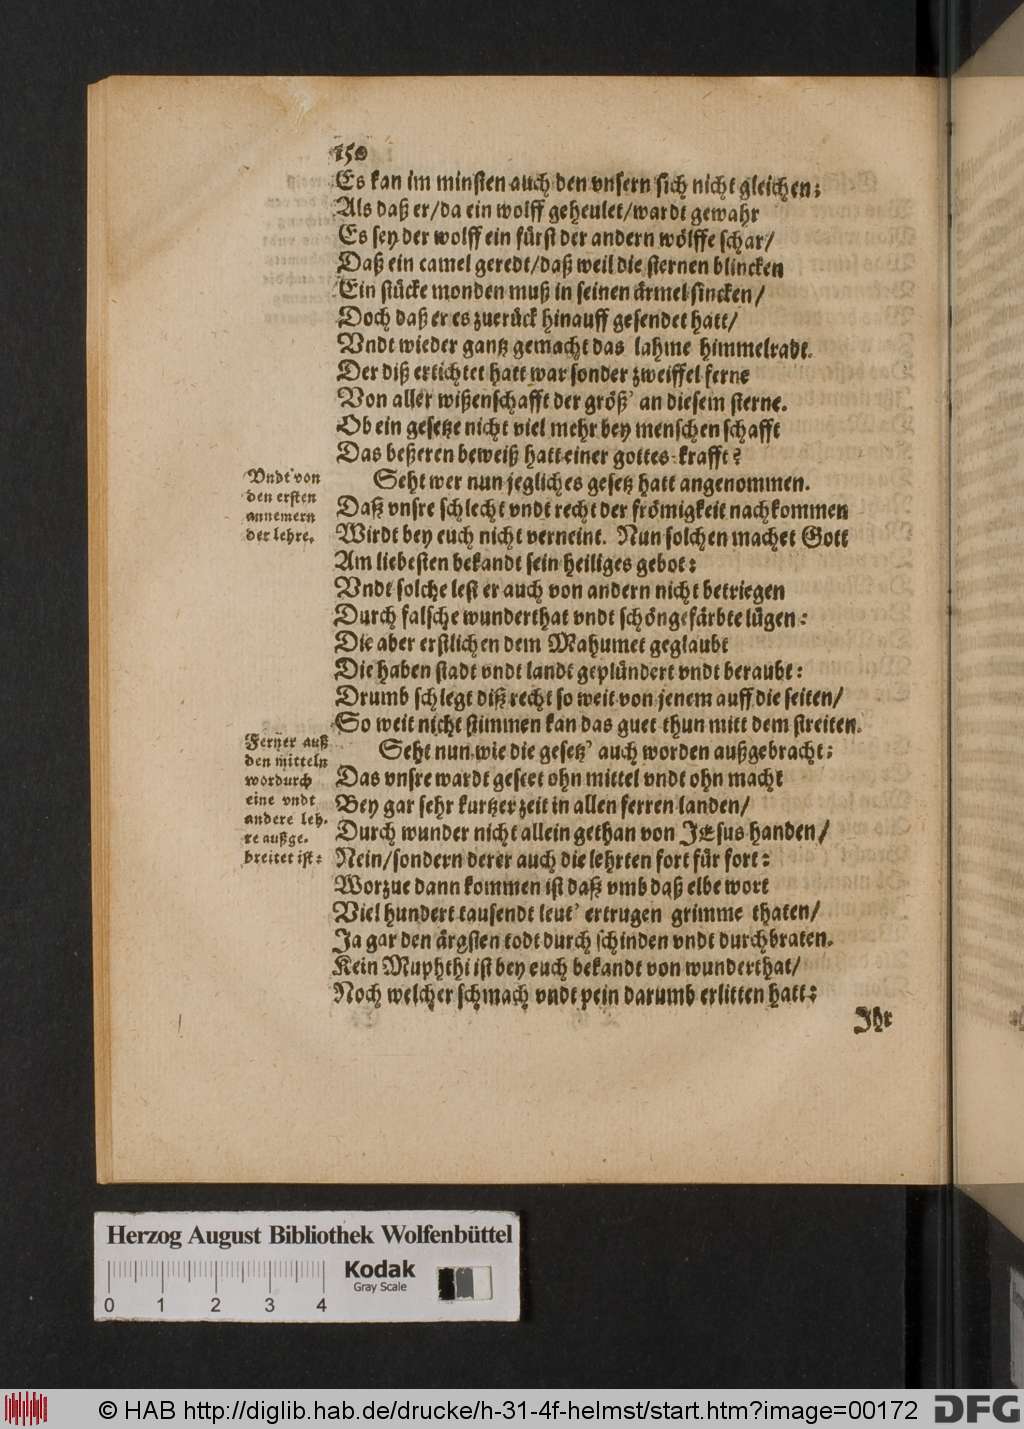 150
Es kan im minsten auch den vnsern sich nicht gleichen:
Als daß er/da ein wolff geheulet/wardt gewahr
Es sey der wolff ein fürst der andern wölffe schar/
Daß ein camel geredt/daß weil die sternen blincken
Ein stücke monden muß in seinen ärmel sincken/
Doch daß er es zuerück hinauff gesendet hatt/
Vndt wieder gantz gemacht das lahme himmelradt.
Der diß ertichtet hatt war sonder zweiffel ferne
Von aller wißenschafft der größ' an diesem sterne.
Ob ein gesetze nicht viel mehr bey menschen schafft
Das beßeren beweiß hatt einer gottes krafft?
Vndt von
den ersten
annemern
der lehre.
Seht wer nun jegliches gesetz hatt angenommen.
Daß vnsre schlecht vndt recht der frömigkeit nachkommen
Wirdt bey euch nicht verneint. Nun solchen machet Gott
Am liebesten bekandt sein heiliges gebot:
Vndt solche lest er auch von andern nicht betriegen
Durch falsche wunderthat vndt schöngefärbte lügen:
Die aber erstlichen dem Mahumet geglaubt
Die haben stadt vndt landt geplündert vndt beraubt:
Drumb schlegt diß recht so weit von jenem auff die seiten/
So weit nicht stimmen kan das guet thun mitt dem streiten.
Ferner auß
den mitteln
wordurch
eine vndt
andere leh-
re außge-
breitet ist:
Seht nun wie die gesetz' auch worden außgebracht:
Das vnsre wardt geseet ohn mittel vndt ohn macht
Bey gar sehr kurtzer zeit in allen ferren landen/
Durch wunder nicht allein gethan von JEsus handen/
Nein/sondern derer auch die lehrten fort für fort:
Worzue dann kommen ist daß vmb daß elbe wort
Viel hundert tausendt leut' ertrugen grimme thaten/
Ja gar den ärgsten todt durch schinden vndt durchbraten.
Kein Muphthi ist bey euch bekandt von wunderthat/
Noch welcher schmach vndt pein darumb erlitten hatt:
Ihr
Herzog August Bibliothek Wolfenbüttel
Kodak
Gray Scale
0 1 2 3 4
© HAB http://diglib.hab.de/drucke/h-31-4f-helmst/start.htm?image=00172
DFG